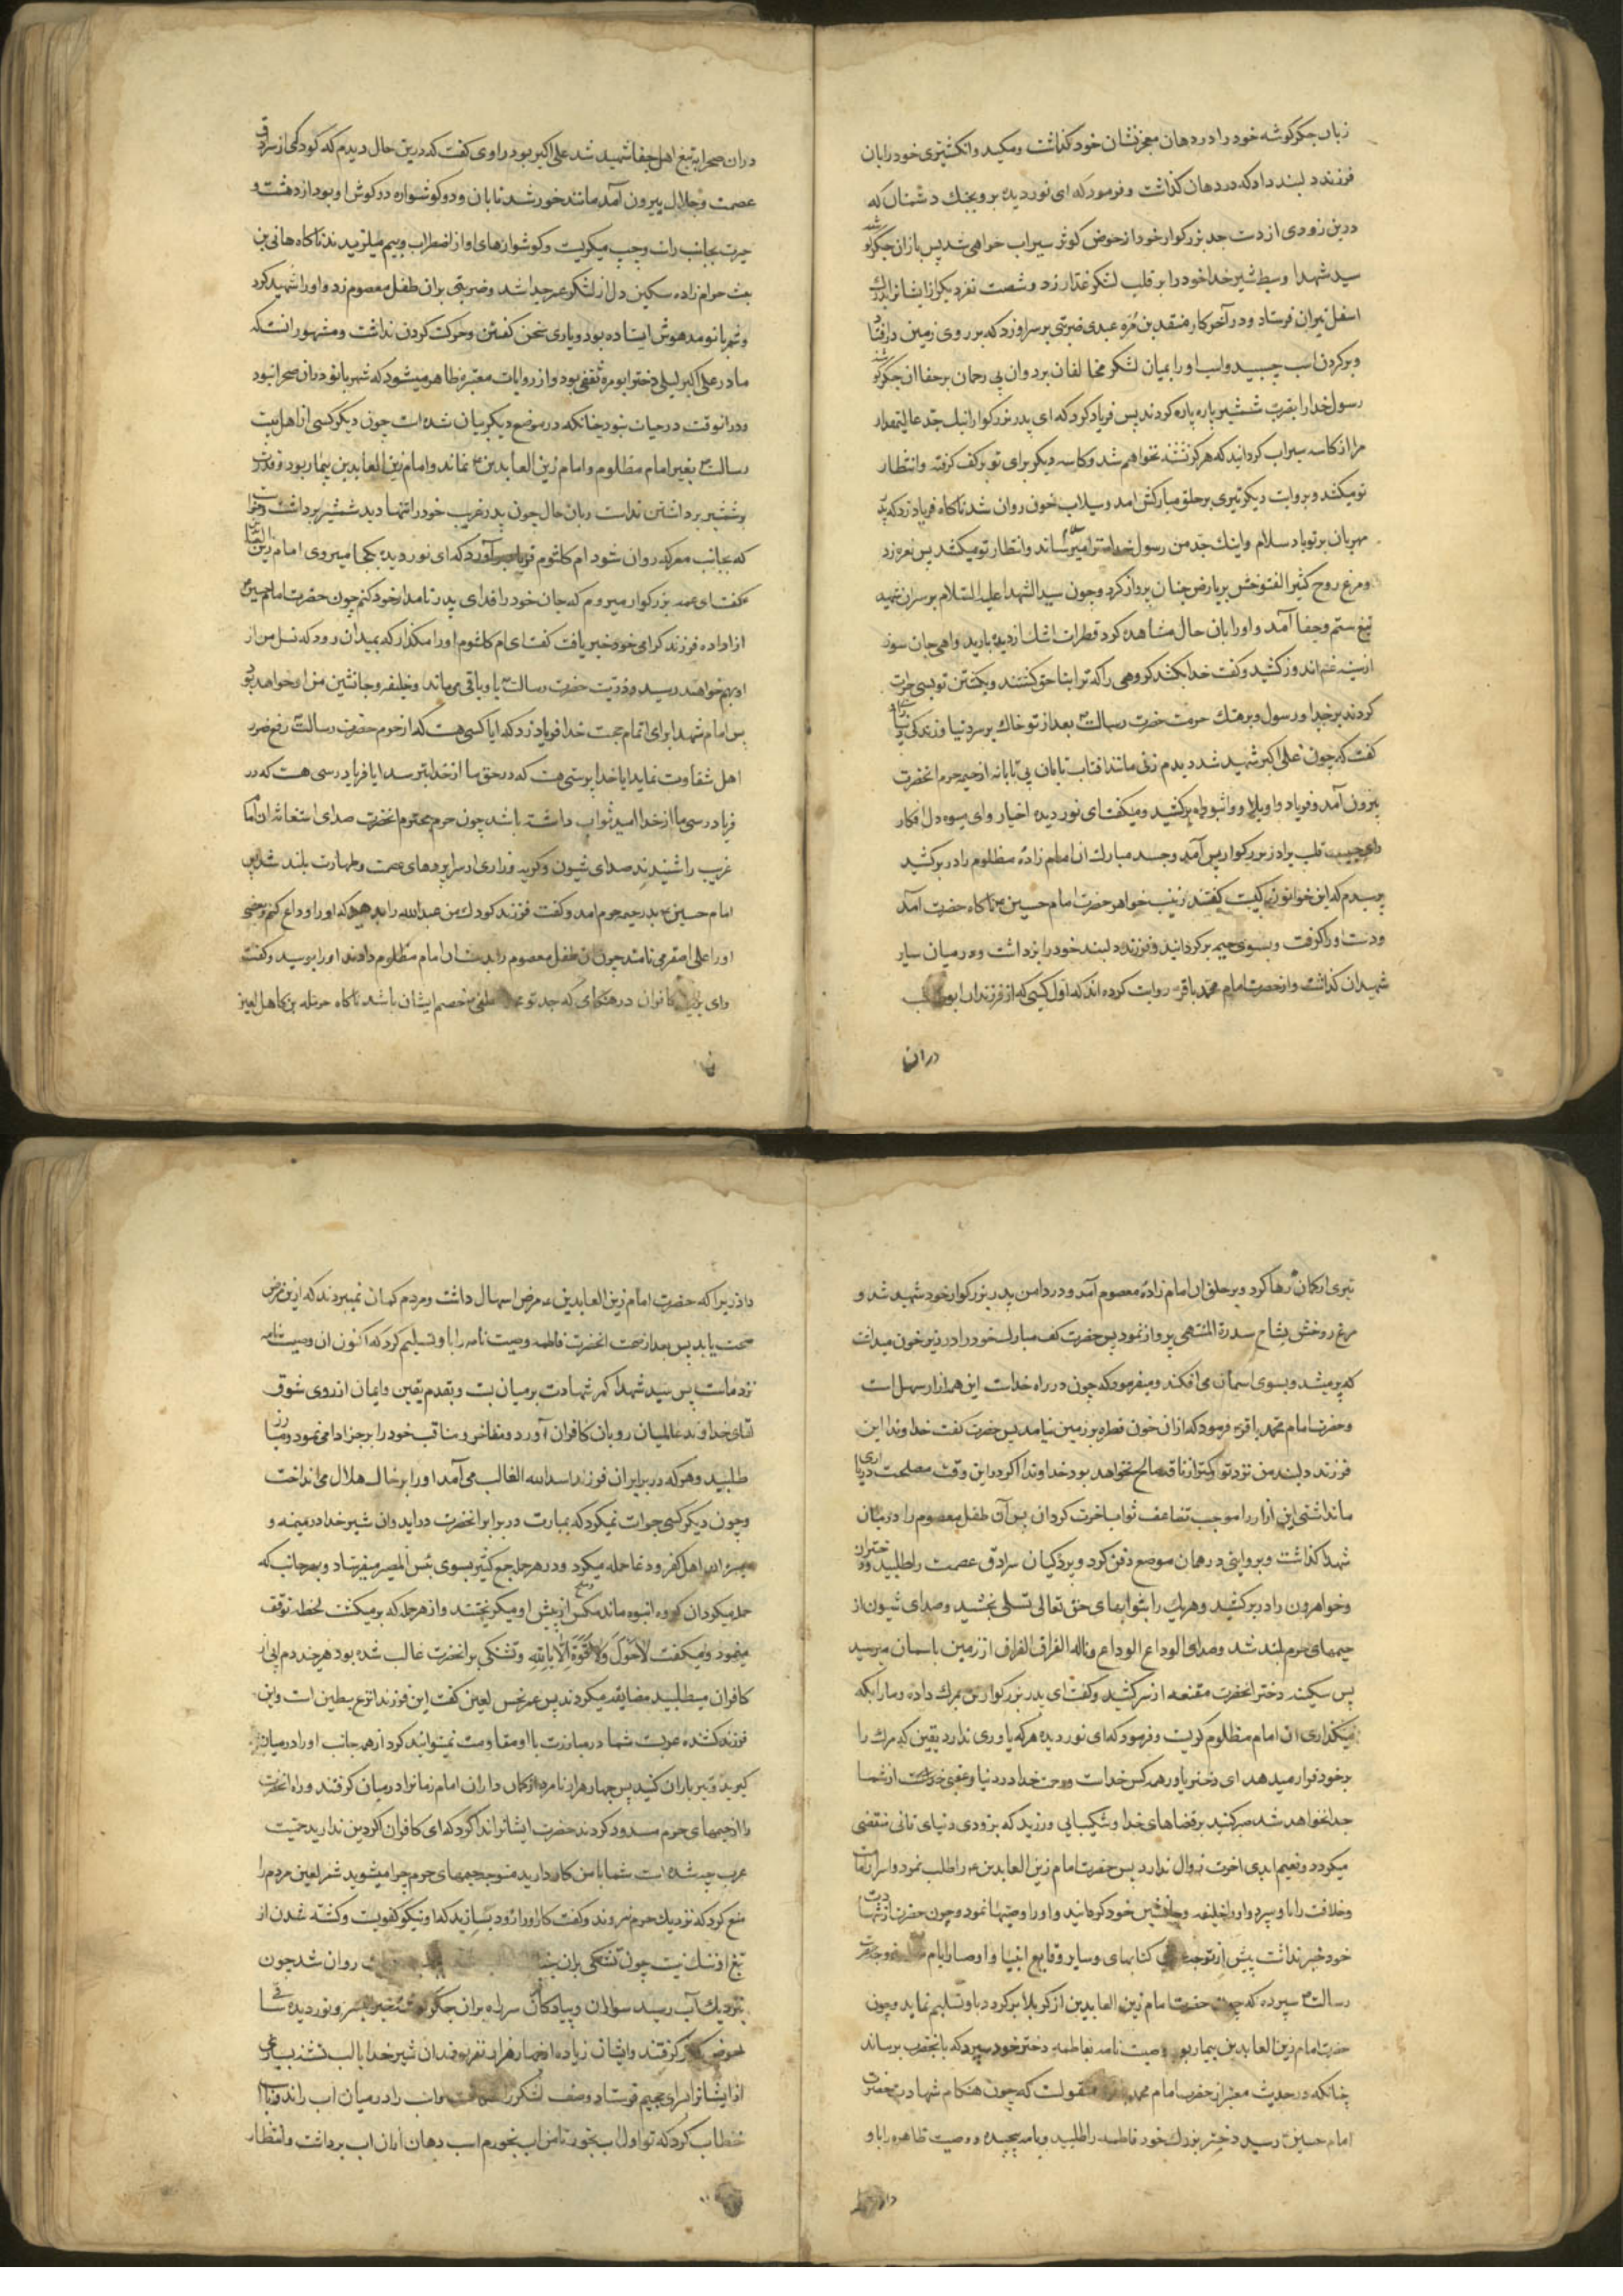 زبان جگرگوشه خود را در دهان معجزنشان خود گذاشت ومکید وانگشتری خود را بان
فرزند دلبند داد که در دهان گذاشت وفرمود که ای نور دیده برو بجنک دشمنان که
درین زودی از دست جد بزرکوار خود از حوض کوثر سیراب خواهی شد پس بازان جگرگوشه
سید شهدا وسبط شیر خدا خود را بر قلب لشکر غدار زد وشصت نفر دیکر از ایشانرا بدرک
اسفل نیران فرستاد ودر آخر کار منقد بن مُره عبدی ضربتی بر سر او زد که بر روی زمین درافتاد
وبر کردن اسب چسبید واسب او را بمیان لشکر مخالفان برد وان بی رحمان برجفا ان جگرگوشه
رسول خدا را بضرب شمشیر پاره پاره کردند پس فریاد کرد که ای پدر بزرکوار اینک جد عالیمقدار
مرا از کاسه سیراب کردانید که هرکز تشنه نخواهم شد وکاسه دیکر برای تو بر کف کرفته وانتظار
تو میکشد وبروایت دیکر تیری بر حلق مبارکش امد وسیلاب خون روان شد ناکاه فریاد زد که پدر
مهربان بر تو باد سلام واینک جد من رسول خداست ترا سلام میرساند وانتظار تو میکشد پس نعره زد
ومرغ روح کثیر الفتوحش بریاض جنان پرواز کرد وچون سید الشهدا علیه السلام بر سر ان شهید
تیغ ستم وجفا آمد واو را بان حال مشاهده کرد قطرات اشک از دیده بارید واهی جان سوز
از سینه غم اندوز کشید وکفت خدا بکشد کروهی را که ترا بنا حق کشتند وبکشتن تو بسی جرات
کردند بر خدا ورسول وبر هتک حرمت حضرت رسالت بعد از تو خاک بر سر دنیا وزندکی دنیا
کفت که چون علی اکبر شهید شد دیدم زنی مانند افتاب تابان بی تابانه از خیمه حرم انحضرت
بیرون آمد وفریاد واویلاه وواثبوراه برکشید ومیکفت ای نور دیده اخیار وای میوه دل افکار
وای حبیب قلب برادر بزرکوار پس آمد وجسد مبارک ان امام زاده مظلوم را در برکشید
پرسیدم که این خواتون کیست کفتند زینب خواهر حضرت امام حسین ناکاه حضرت آمد
ودست او را کرفت وبسوی خیمه برکردانید وفرزند دلبند خود را برداشت ودر میان سایر
شهیدان کذاشت واز حضرت امام محمد باقر روایت کرده اند که اول کسی که از فرزندان ابو
دران
دران صحرا بتیغ اهل جفا شهید شد علی اکبر بود راوی کفت که درین حال دیدم که کودکی از سرادق
عصمت وجلال بیرون آمد مانند خورشید تابان ودو کوشواره در کوش او بود از دهشت و
حیرت بجانب راست وچپ میکریست وکوشوارهای او از اضطراب وبیم میلرزیدند ناکاه هانی بن
بعث حرام زاده سکین دل از لشکر عمر جدا شد وضربتی بر ان طفل معصوم زد واو را شهید کرد
وشهربانو مدهوش ایستاده بود ویاری سخن کفتن وحرکت کردن نداشت ومشهور انست که
مادر علی اکبر لیلی دختر ابو مره ثقفی بود واز روایات معتبره ظاهر میشود که شهربانو دران صحرا نبود
ودر انوقت در حیات نبود چنانکه در موضع دیکر بیان شده است چون دیکر کسی از اهل بیت
رسالت بغیر امام مظلوم وامام زین العابدین نماند وامام زین العابدین بیمار بود وقدرت
بر شمشیر برداشتن نداشت دران حال چون پدر غریب خود را تنها دید شمشیر برداشت وخواست
که بجانب معرکه روان شود ام کلثوم فریاد برآورد که ای نور دیده بکجا میروی امام زین العابدین
کفت ای عمه بزرکوار میروم که جان خود را فدای پدر نامدار خود کنم چون حضرت امام حسین
از اراده فرزند کرامی خود خبر یافت کفت ای ام کلثوم او را مکذار که بمیدان رود که نسل من از
او بهم خواهند رسید وذریت حضرت رسالت باو باقی میماند وخلیفه وجانشین من او خواهد بود
پس امام شهدا برای اتمام حجت خدا فریاد زد که ایا کسی هست که از حرم حضرت رسالت رفع ضرر
اهل شقاوت نماید ایا خدا پرستی هست که در حق ما از خدا بترسد ایا فریاد رسی هست که در
فریاد رسی ما از خدا امید ثواب داشته باشد چون حرم محترم انحضرت صدای استغاثه ان امام
غریب را شنیدند صدای شیون وکریه وزاری از سراپردهای عصمت وطهارت بلند شد پس
امام حسین بدر خیمه حرم امد وکفت فرزند کودک من عبدالله را بدهید که او را وداع کنم وبعضی
او را علی اصغر می نامند چون ان طفل معصوم را بدست ان امام مظلوم دادند او را بوسید وکفت
وای بر کافران در هنکامی که جد تو محمد مصطفی خصم ایشان باشد ناکاه حرمله بن کاهل لعین
تیری از کمان رها کرد وبر حلق ان امام زاده معصوم آمد ودر دامن پدر بزرکوار خود شهید شد و
مرغ روحش بشاخ سدرة المنتهی پرواز نمود پس حضرت کف مبارک خود را در زیر خون میداشت
که پر میشد وبسوی اسمان می افکند ومیفرمود که چون در راه خداست این همه ازار سهل است
وحضرت امام محمد باقر فرمود که از ان خون قطره بر زمین نیامد پس حضرت کفت خداوندا این
فرزند دلبند من نزد تو کمتر از ناقه صالح نخواهد بود خداوندا اکر در این وقت مصلحت در یاری
ما نداشتی این ازار را موجب تضاعف ثواب اخرت کردان پس آن طفل معصوم را در میان
شهدا کذاشت وبروایتی در همان موضع دفن کرد وپردکیان سرادق عصمت را طلبید ودختران
وخواهرون را در برکشید وهر یک را بثوابهای حق تعالی تسلی بخشید وصدای شیون از
خیمهای حرم بلند شد وصدای الوداع الوداع وناله الفراق الفراق از زمین باسمان میرسید
پس سکینه دختر انحضرت مقنعه از سر کشید وکفت ای پدر بزرکوار تن بمرک داده وما را بکه
میکذاری ان امام مظلوم کریست وفرمود که ای نور دیده هر که یاوری ندارد یقین که مرک را
بر خود قرار میدهد ای دختر یاور همه کس خداست ورحمت خدا در دنیا وعقبی از شما
جدا نخواهد شد صبر کنید بر قضاهای خدا وشکیبایی ورزید که بزودی دنیای فانی منقضی
میکردد ونعیم ابدی اخرت زوال ندارد پس حضرت امام زین العابدین را طلب نمود واسرار امامت
وخلافت را باو سپرد واو را خلیفه وجانشین خود کردانید واو را وصیتها نمود وچون حضرت از شهادت
خود خبر نداشت پیش از توجه کتابهای وسایر ودایع انبیا واوصیا را بام
رسالت سپرده که چون حضرت امام زین العابدین از کربلا برکردد باو تسلیم نماید وچون
حضرت امام زین العابدین بیمار بود وصیت نامه بفاطمه دختر خود سپرد که بانحضرت برساند
چنانکه در حدیث معتبر از حضرت امام محمد منقولست که چون هنکام شهادت حضرت
امام حسین رسید دختر بزرک خود فاطمه را طلبید ونامه پیچیده ووصیت ظاهره را باو
داد زیرا که حضرت امام زین العابدین مرض اسهال داشت ومردم کمان نمیبردند که از ین مرض
صحت یابد پس بعد از صحت انحضرت فاطمه وصیت نامه را باو تسلیم کرد که اکنون ان وصیت نامه
نزد ماست پس سید شهدا کمر شهادت بر میان بست وبقدم یقین وایمان از روی شوق
لقای خداوند عالمیان رو بان کافران آورد ومفاخر ومناقب خود را برجز ادا می نمود ومبارز
طلبید وهر که در برابر ان فرزند اسد الله الغالب می آمد او را بر خاک هلاک می انداخت
وچون دیکر کسی جرات نمیکرد که بمبارزت در برابر انحضرت دراید وان شیر خدا در میمنه و
میسره ان اهل کفر ودغا حمله میکرد ودر هر حمله جمع کثیر بسوی بئس المصیر میفرستاد وبهر جانب که
حمله میکرد ان کروه انبوه مانند مکس وملخ از پیش او میکریختند واز هر حمله که بر میکشت لحظه توقف
مینمود ومیکفت لاحَوْلَ وَلاقُوّةَ اِلّا بِاللهِ وتشنکی بر انحضرت غالب شده بود هر چند دم ابی از
کافران میطلبید مضایقه میکردند پس عمر نجس لعین کفت این فرزند انزع بطین است واین
فرزند کشنده عربست شما در مبارزت با او مقاومت نمیتوانید کرد از هر جانب او را در میان
کیرید وتیر باران کنید پس چهار هزار نامرد از کمان داران امام زمانرا در میان کرفتند وراه انحضرت
را از خیمهای حرم مسدود کردند حضرت ایشانرا ندا کرد که ای کافران اکر دین ندارید حمیت
عرب چه شده است شما با من کار دارید متوجه خیمهای حرم چرا میشوید شمر لعین مردم را
منع کرد که نزدیک حرم نروند وکفت کار او را زود بسازید که او نیکو کفویست وکشته شدن از
تیغ او ننک نیست چون تشنکی بران روان شد چون
نزدیک آب رسید سواران وپیادکان سر راه بر ان جکرکوشه ونور دیده ساقی
حوض کوثر کرفتند وایشان زیاده از چهار هزار نفر بودند ان شیر خدا با لب تشنه بسیاری
از ایشانرا بسرای جحیم فرستاد وصف لشکر را واسب را در میان اب راند وبا اسب
خطاب کرد که تو اول اب بخور تا من اب بخورم اسب دهان از ان اب برداشت وانتظار